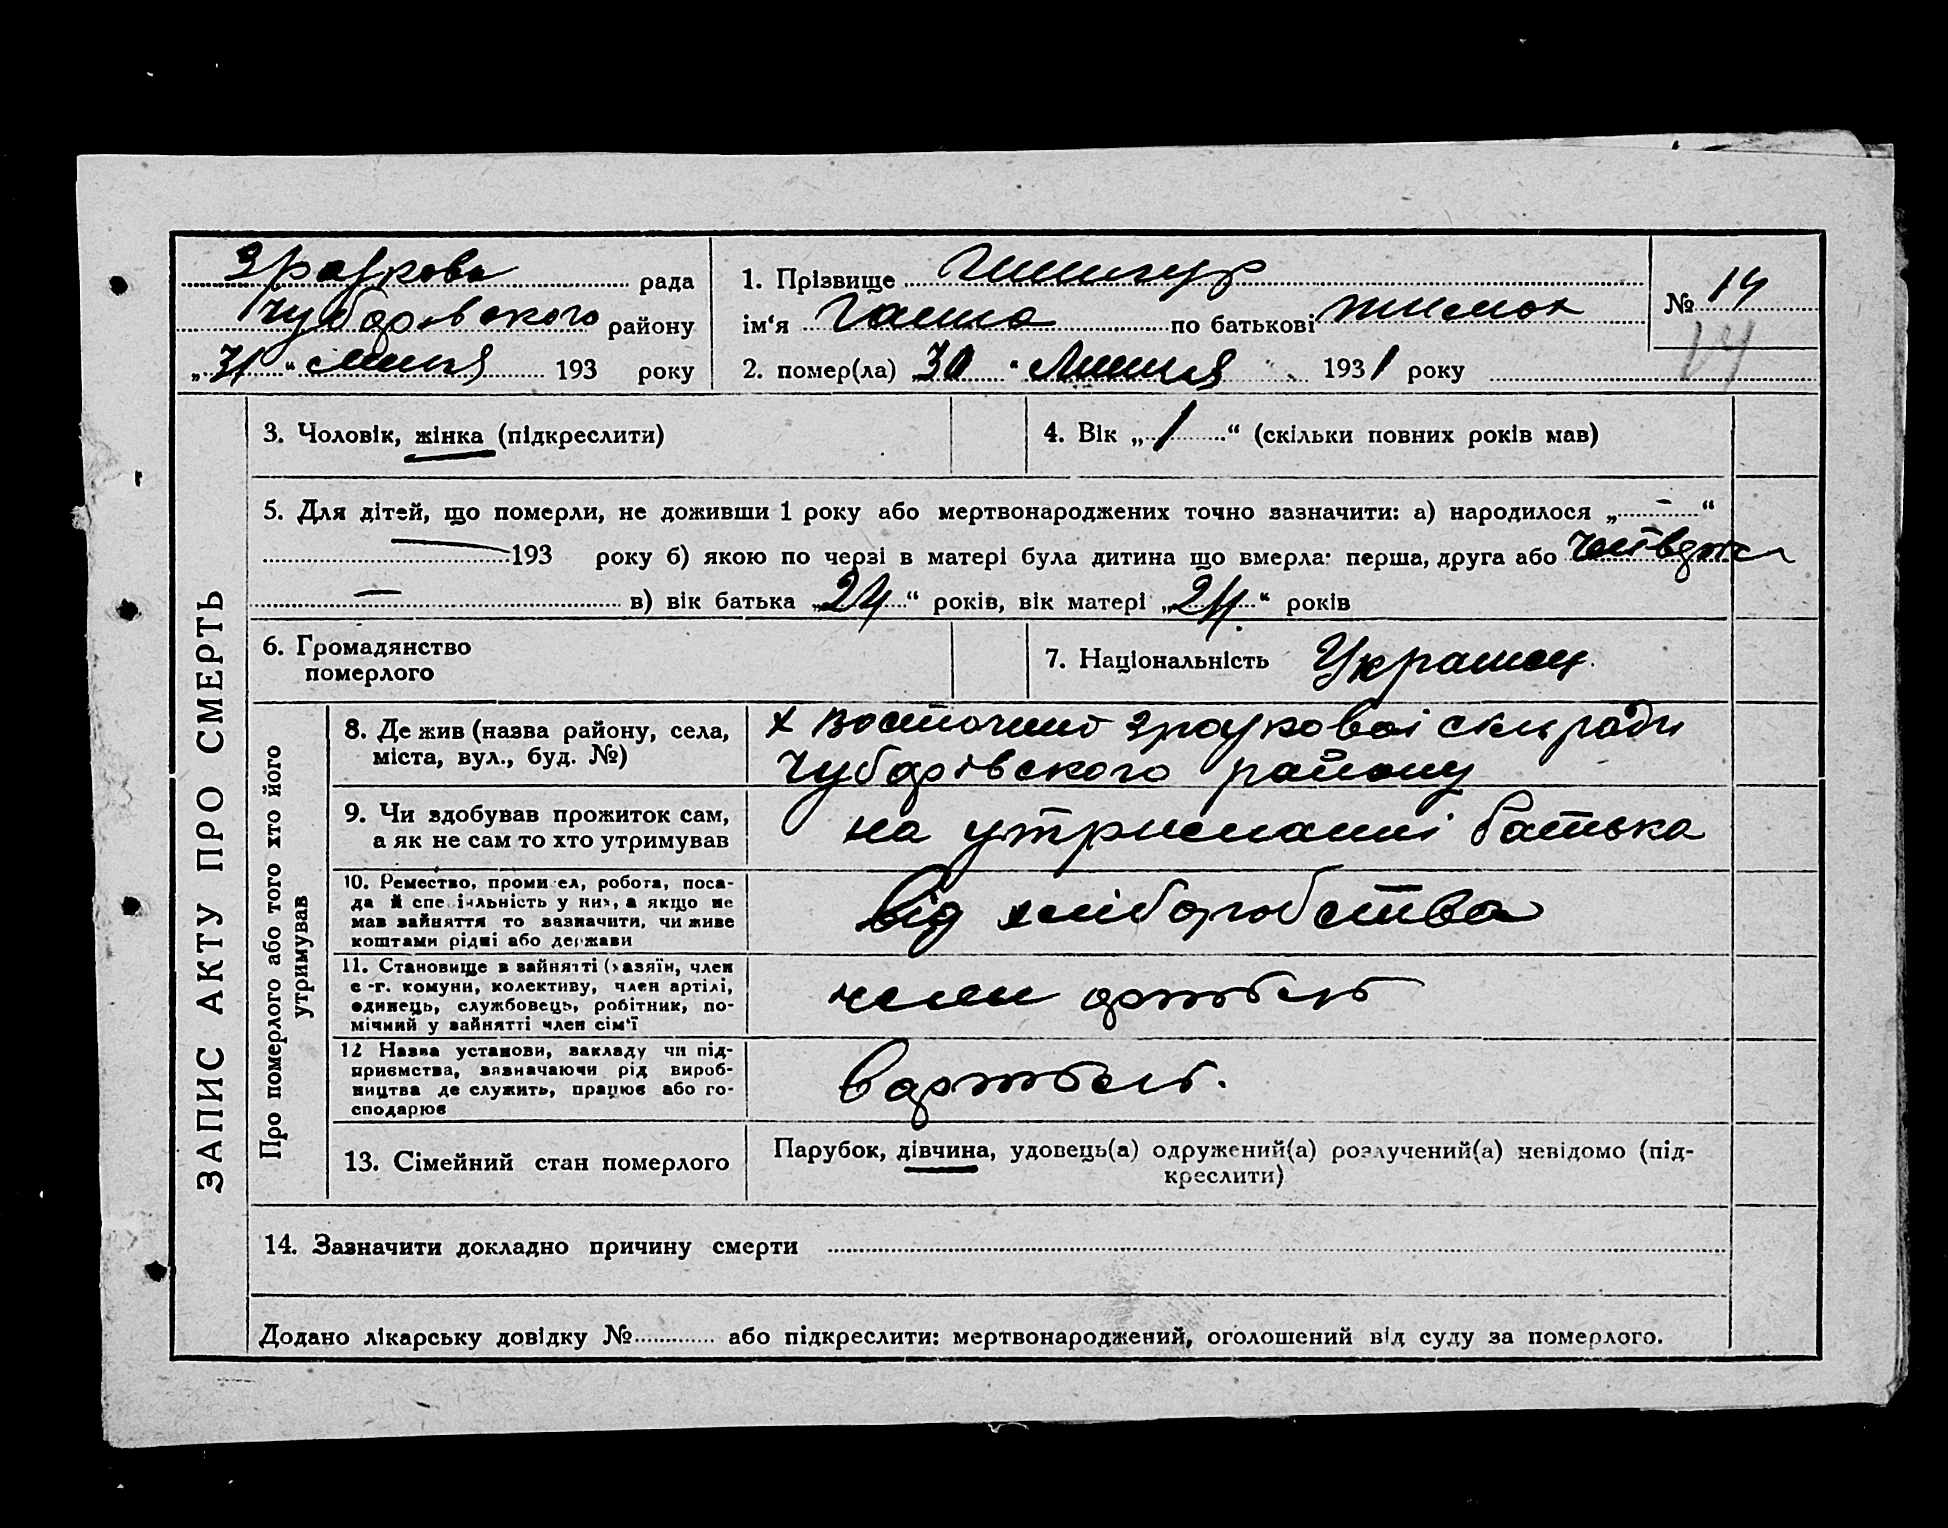 рада
Чубарівського району
„31“ липня 193 року
1. Прізвище
ім‘я Ганна по батькові
2. помер(ла) 30 “ Липня 1931 року
№ 14
14
ЗАПИС АКТУ ПРО СМЕРТЬ
3. Чоловік, жінка (підкреслити)
4. Вік „1“ (скільки повних років мав)
5. Для дітей, що померли, не доживши 1 року або мертвонароджених точно зазначити: а) народилося „ – “
193 року б) якою по черзі в матері була дитина що вмерла: перша, друга або
— в) вік батька „24“ років, вік матері „24“ років
6. Громадянство
померлого
7. Національність
Про померлого або того хто його
утримував
8. Де жив (назва району, села,
міста, вул., буд. №)
х
Чубарівського району
9. Чи здобував прожиток сам,
а як не сам то хто утримував
на утриманні батька
10. Ремество, промисел, робота, поса-
да й спеціяльність у них, а якщо не
мав зайняття то зазначити, чи живе
коштами рідні або держави
від хліборобства
11. Становище в зайнятті (хазяїн, член
с.-г. комуни, колективу, член артілі,
одинець, службовець, робітник, по-
мічний у зайнятті член сім‘ї
член артіль
12 Назва установи, закладу чи під-
приємства, зазначаючи рід вироб-
ництва де служить, працює або го-
сподарює
в артель.
13. Сімейний стан померлого
Парубок, дівчина, удовець(а) одружений(а) розлучений(а) невідомо (під-
креслити)
14. Зазначити докладно причину смерти
Додано лікарську довідку № або підкреслити: мертвонароджений, оголошений від суду за померлого.